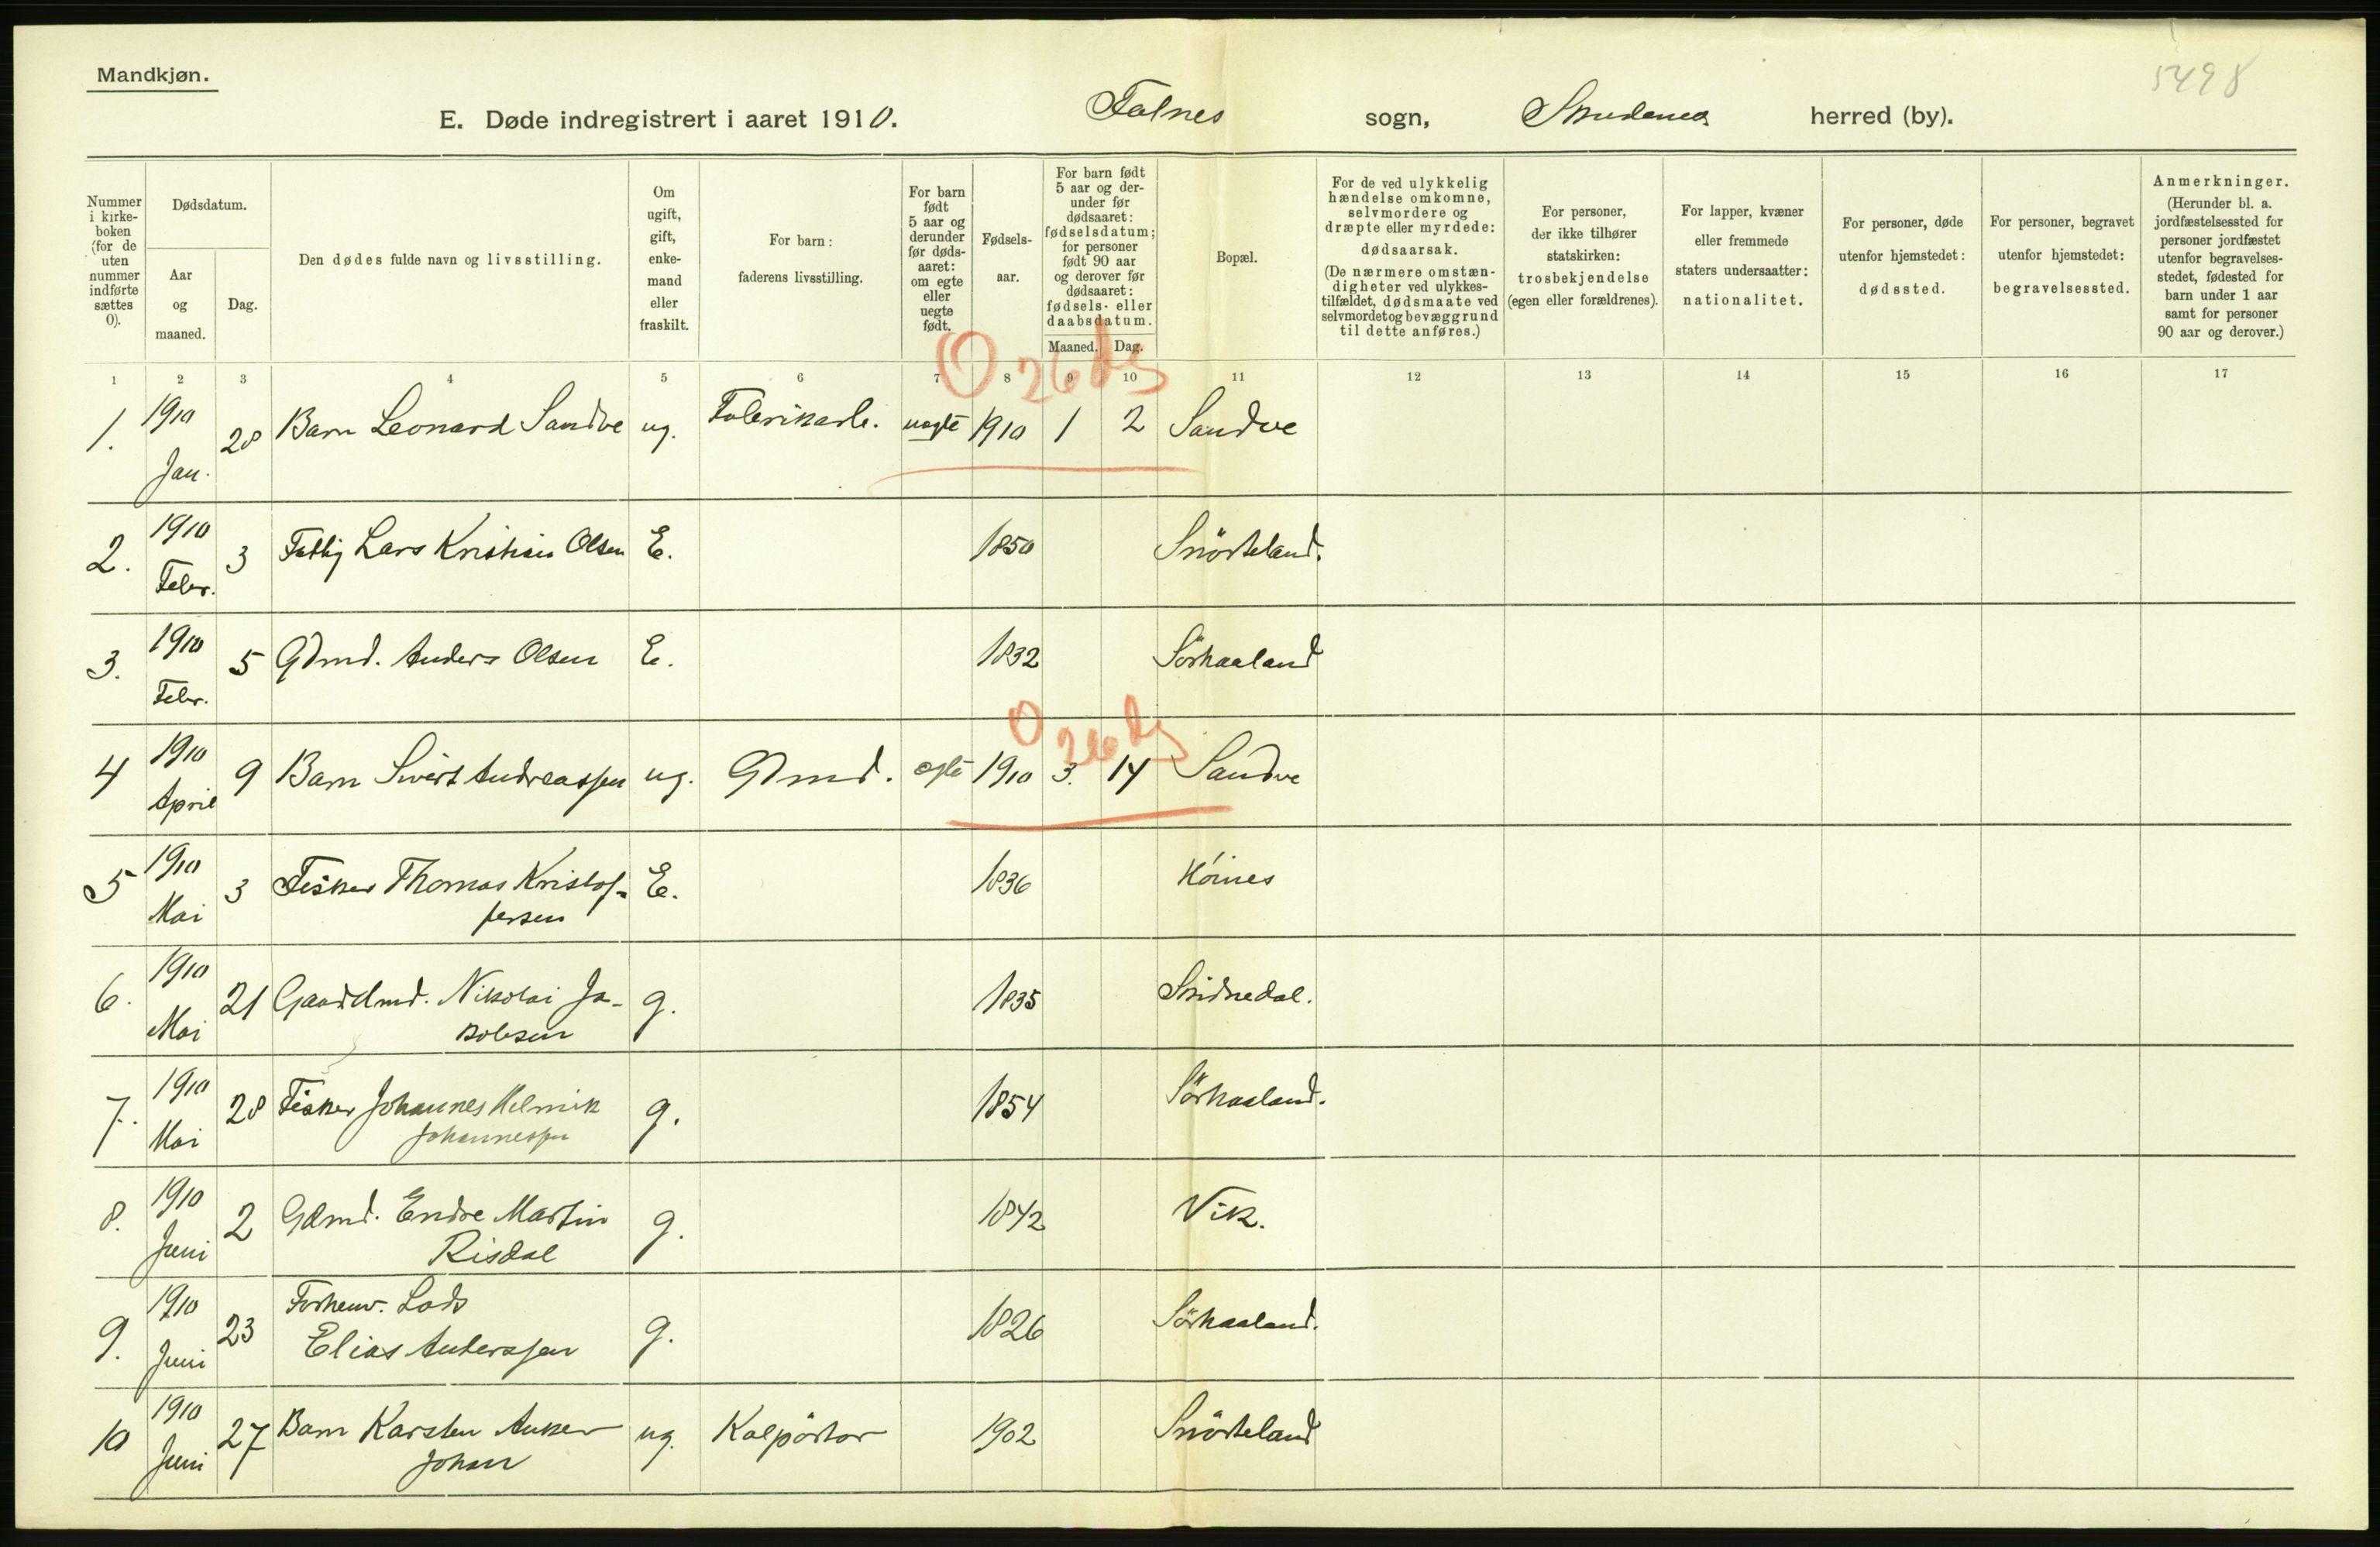 5498
Mandkjøn.
E. Døde indregistrert i aaret 1910. Falnes sogn, Skudenes herred (by).
Nummer i kirke-boken (for de uten nummer indførte sættes 0).
Dødsdatum.
Aar og maaned.
Dag.
Den dødes fulde navn og livsstilling.
Om ugift, gift, enke-mand eller fraskilt.
For barn: faderens livsstilling.
For barn født 5 aar og derunder før døds-aaret: om egte eller uegte født.
Fødsels-aar.
For barn født 5 aar og der-under før dødsaaret: fødselsdatum; for personer født 90 aar og derover før dødsaaret: fødsels- eller daabsdatum.
Maaned. Dag.
Bopæl.
For de ved ulykkelig hændelse omkomne, selvmordere og dræpte eller myrdede: dødsaarsak. (De nærmere omstæn-digheter ved ulykkes-tilfældet, dødsmaate ved selvmordet og bevæggrund til dette anføres.)
For personer, der ikke tilhører statskirken: trosbekjendelse (egen eller forældrenes).
For lapper, kvæner eller fremmede staters undersaatter: nationalitet.
For personer, døde utenfor hjemstedet: dødssted.
For personer, begravet utenfor hjemstedet: begravelsessted.
Anmerkninger. (Herunder bl. a. jordfæstelsessted for personer jordfæstet utenfor begravelses-stedet, fødested for barn under 1 aar samt for personer 90 aar og derover.)
1 2 3 4 5 6 7 8 9 10 11 12 13 14 15 16 17
0 26 dg
1. 1910 Jan. 28 Barn Leonard Sandve ug. Fabrikarb. uegte 1910 1 2 Sandve
2. 1910 Febr. 3 Fattig Lars Kristian Olsen E. 1850 Snörteland.
3. 1910 Febr. 5 Gdmd. Anders Olsen E. 1832 Sörhaaland
0 26 dg
4 1910 April 9 Barn Sivert Andreassen ug. Gdmd. egte 1910 3. 14 Sandve
5 1910 Mai 3 Fisker Thomas Kristof-
fersen E. 1836 Höines
6. 1910 Mai 21 Gaardmd. Nikolai Ja-
kobsen g. 1835 Snidnedal.
7. 1910 Mai 28 Fisker Johannes Helmik
Johannessen g. 1854 Sörhaaland.
8. 1910 Juni 2 Gdmd. Endre Martin
Risdal g. 1842 Vik.
9. 1910 Juni 23 Forhenv. Lods
Elias Anderssen g. 1826 Sörhaaland.
10 1910 Juni 27 Barn Karsten Anker
Johan ug. Kolpörtør 1902 Snörteland